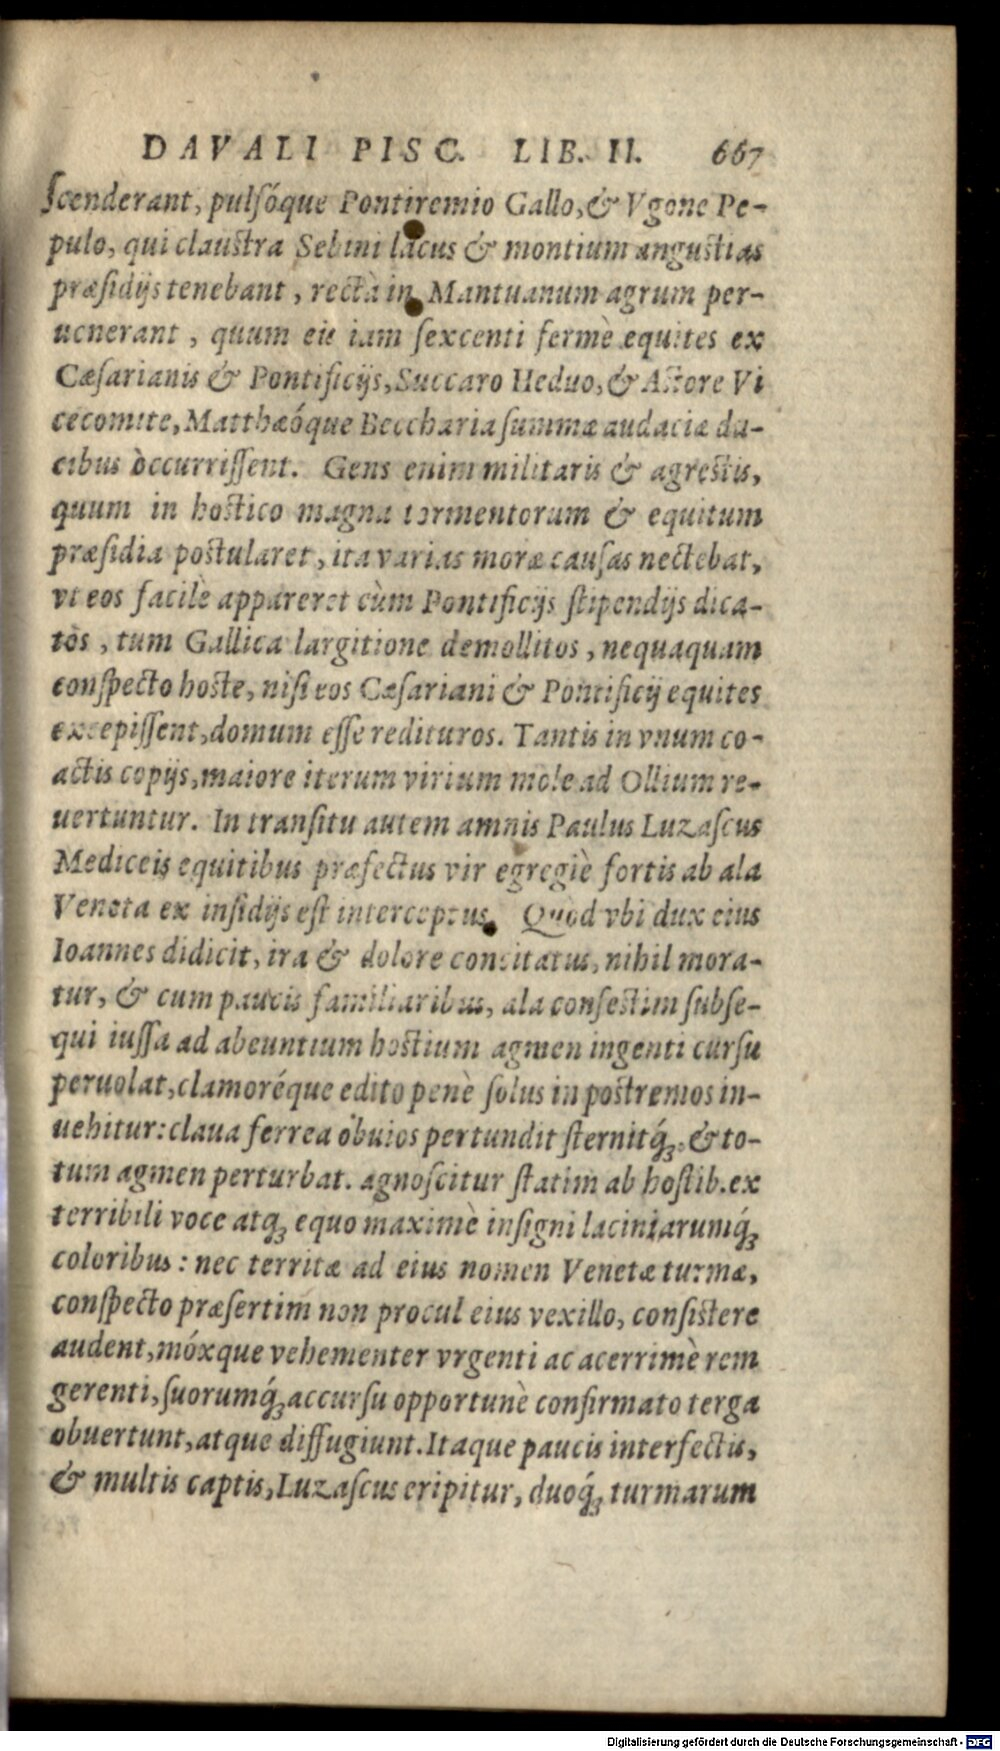 DAVALI PISC. LIB. II. 667
ſcenderant, pulſóque Pontiremio Gallo, & Vgone Pe-
pulo, qui clauſtra Sebini lacus & montium anguſtias
præſidijs tenebant, rectà in Mantuanum agrum per-
uenerant, quum eis iam ſexcenti fermè equites ex
Cæſarianis & Pontificijs, Succaro Heduo, & Aſtore Vi
cecomite, Matthæóque Beccharia ſummæ audaciæ du-
cibus occurriſſent. Gens enim militaris & agreſtis,
quum in hoſtico magna tormentorum & equitum
præſidia poſtularet, ita varias moræ cauſas nectebat,
vt eos facilè appareret cùm Pontificijs ſtipendijs dica-
tos, tum Gallica largitione demollitos, nequaquam
conſpecto hoſte, niſi eos Cæſariani & Pontificij equites
excepiſſent, domum eſſe redituros. Tantis in vnum co-
actis copijs, maiore iterum virium mole ad Ollium re-
uertuntur. In tranſitu autem amnis Paulus Luzaſcus
Mediceis equitibus præfectus vir egregiè fortis ab ala
Veneta ex inſidijs eſt interceptus. Quod vbi dux eius
Ioannes didicit, ira & dolore concitatus, nihil mora-
tur, & cum paucis familiaribus, ala confeſtim ſubſe-
qui iuſſa ad abeuntium hoſtium agmen ingenti curſu
peruolat, clamoréque edito penè ſolus in poſtremos in-
uehitur: claua ferrea obuios pertundit ſternitq́; & to-
tum agmen perturbat. agnoſcitur ſtatim ab hoſtib. ex
terribili voce atq; equo maximè inſigni laciniarumq́;
coloribus: nec territæ ad eius nomen Venetæ turmæ,
conſpecto præſertim non procul eius vexillo, conſiſtere
audent, móxque vehementer vrgenti ac acerrimè rem
gerenti, ſuorumq́; accurſu opportunè confirmato terga
obuertunt, atque diffugiunt. Itaque paucis interfectis,
& multis captis, Luzaſcus eripitur, duoq́; turmarum
Digitalisierung gefördert durch die Deutsche Forschungsgemeinschaft - DFG